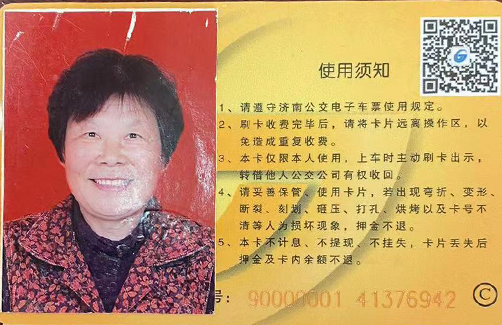 使用须知
1、请遵守济南公交电子车票使用规定。
2、刷卡收费完毕后，请将卡片远离操作区，以
免造成重复收费。
3、本卡仅限本人使用，上车时主动刷卡出示，
转借他人公交公司有权收回。
4、请妥善保管、使用卡片，若出现弯折、变形、
断裂、刻划、砸压、打孔、烘烤以及卡号不
清等人为损坏现象，押金不退。
5、本卡不计息、不提现、不挂失，卡片丢失后
押金及卡内余额不退。
号: 90000001 41376942 C